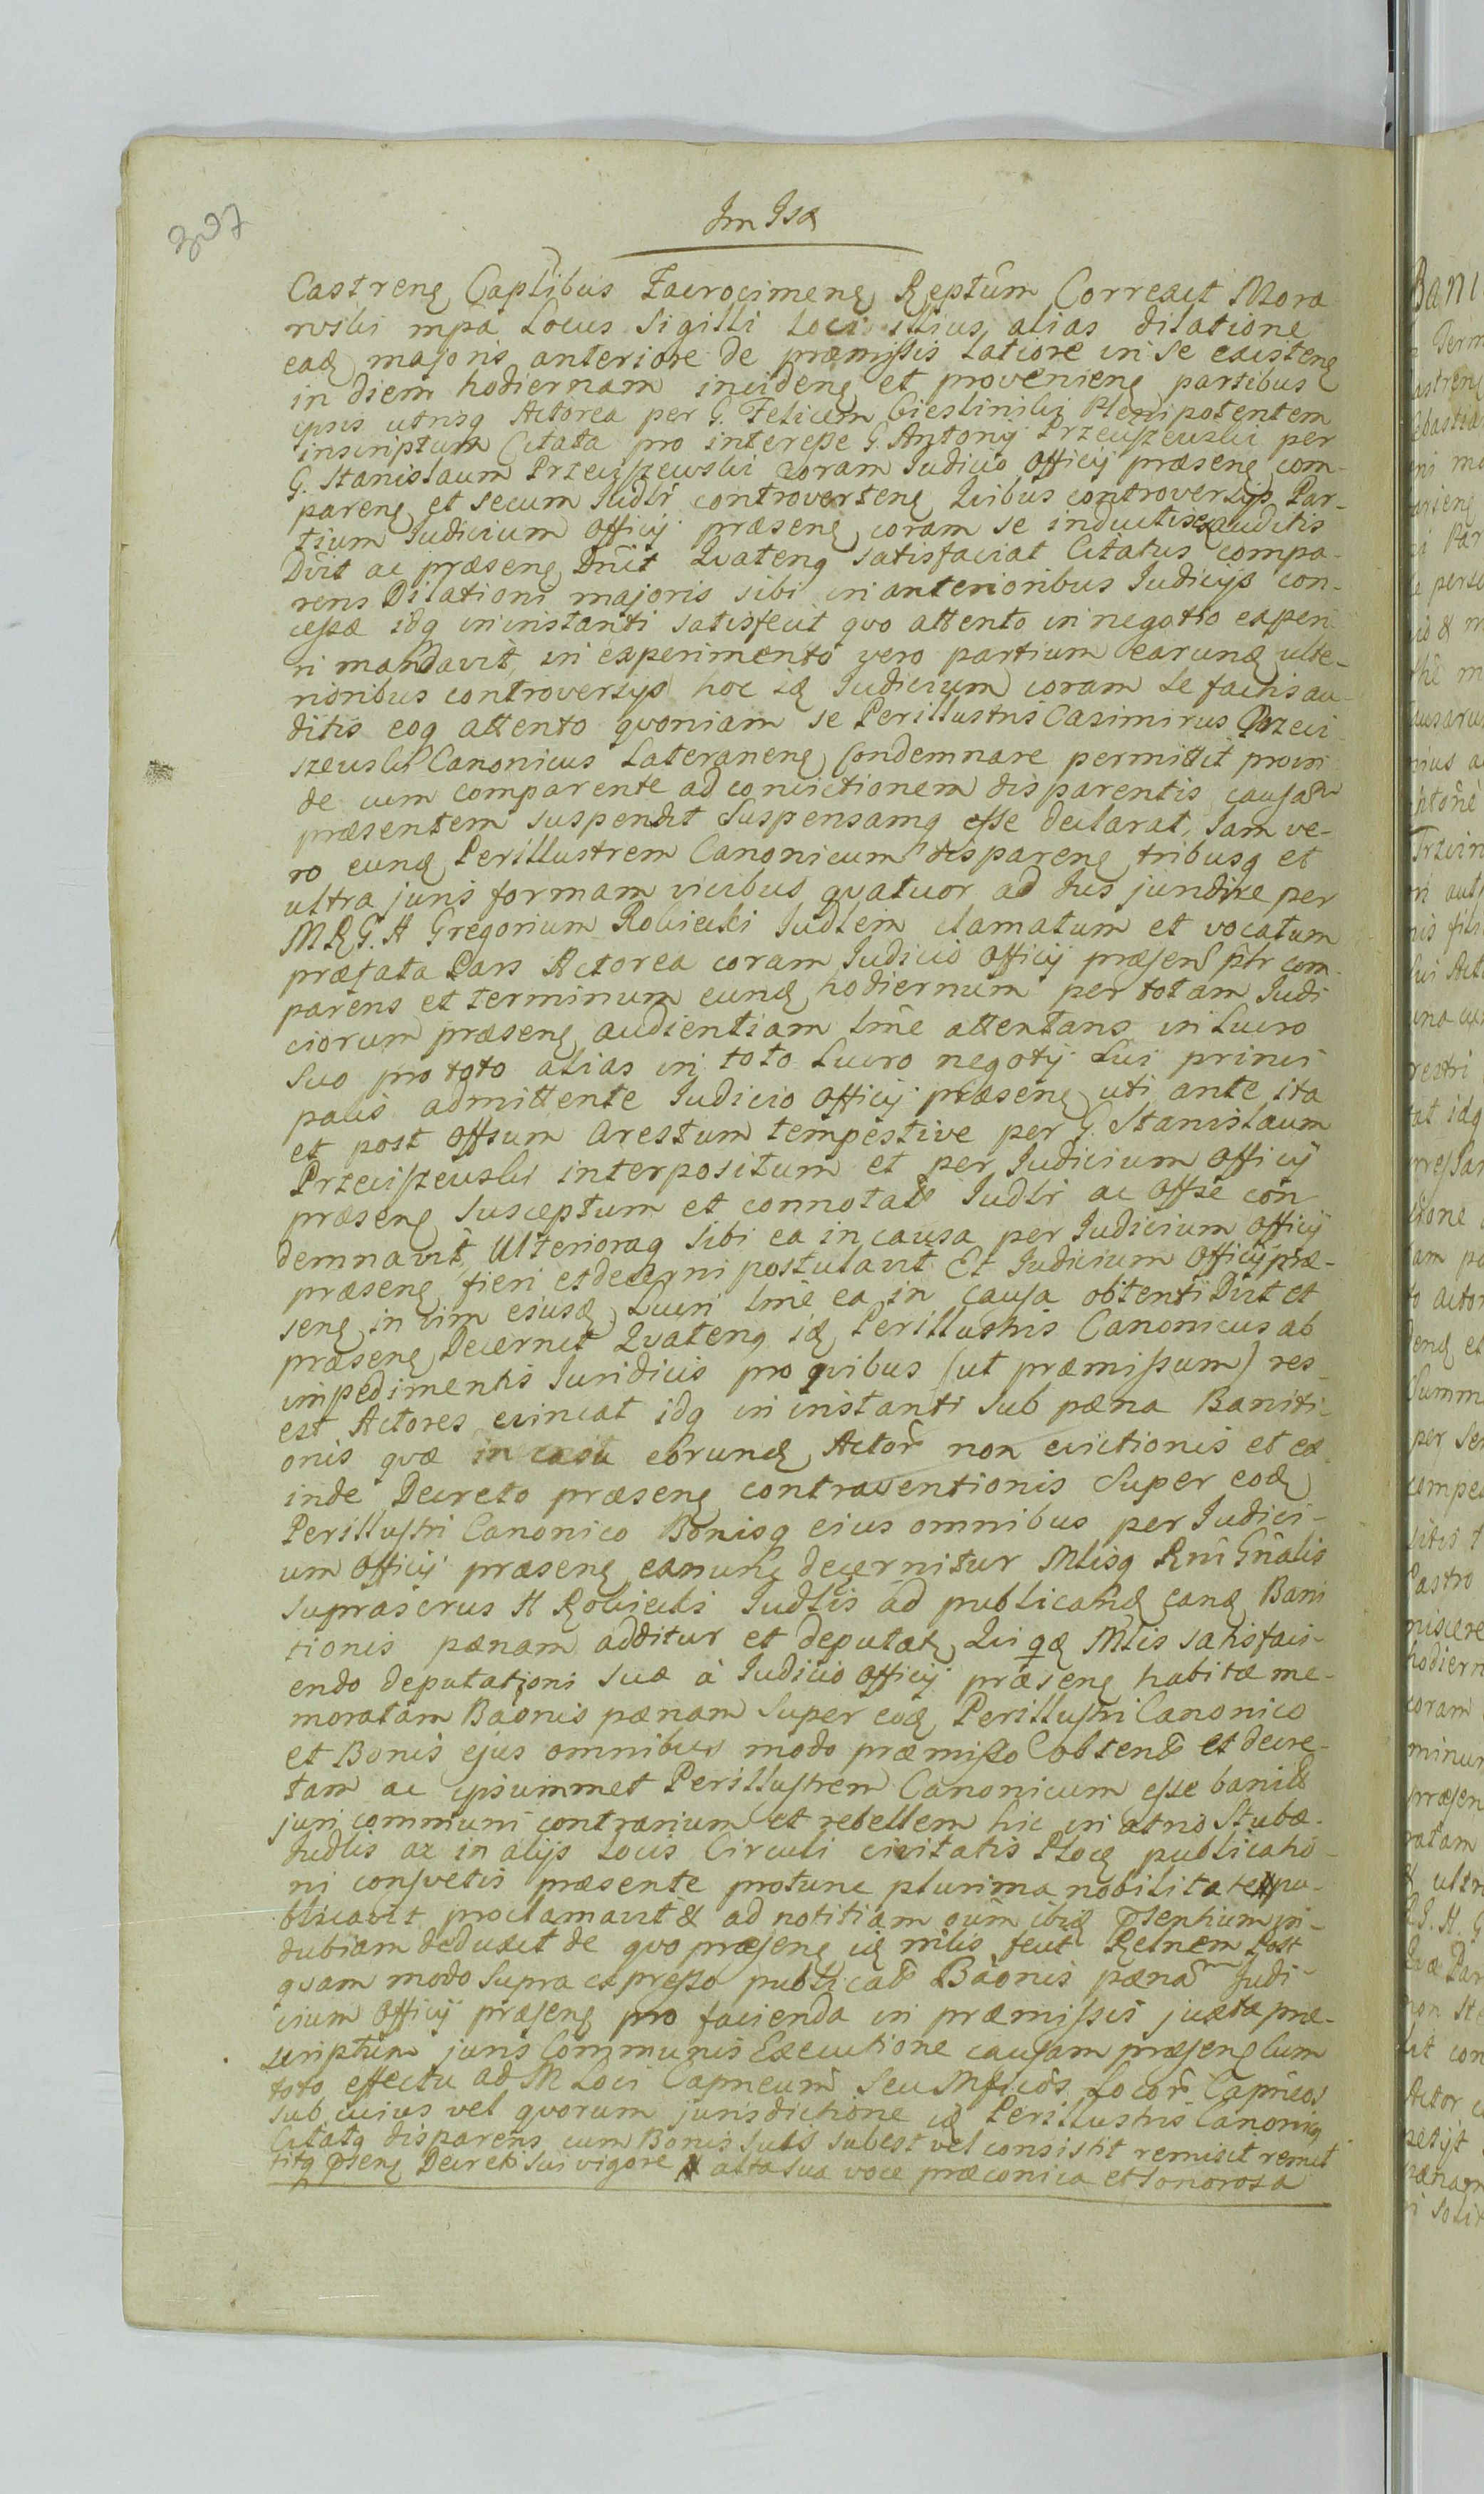 307
Im Isæ
Castrenȩ Captibus Zacrocimenȩ Reptūm Correxit Mora
wski mpa Locus Sigilli loci illius, alias dilatione
eadȩ majoris anteriore de præmissis Latiore in se existenȩ
in diem hodiernam incidenȩ et provenienȩ partibus
ipsis utrisq Actorea per G. Felicem Cieslinski Plenipotentem
inscriptum Citata pro interesse G. Antonij Przeciszewski per
G. Stanislaum Przeciszewski coram Judicio Officij præsenȩ com-
parenȩ et secum Judlr controvertenȩ Qvibus controversijs Par-
tium Judicium Officij præsenȩ coram se inductis & auditis
Dvit ac præsenȩ Dnit Qvatenq satisfaciat Citatus compa-
rens Dilationi majoris sibi in anterioribus Judicijs con-
cessæ idq in instanti satisfecit qvo attento in negotio experi-
ri mandavit, in experimento vero partium earundȩ ulte-
rioribus controversijs hoc idȩ Judicium coram se factis au-
ditis eoq attento qvoniam se Perillustris Casimirus Przeci-
szewski Canonicus Lateranenȩ Condemnare permittit proin
de cum comparente ad convictionem disparentis causam
præsentem suspendit Suspensamq esse declarat, Jam ve-
ro eundȩ Perillustrem Canonicum disparenȩ tribusq et
ultra juris formam vicibus qvatuor ad Jus jundire per
M R G. H Gregorium Robiecki Judlem clamatum et vocatum
præfata Pars Actorea coram Judicio Officij præsenȩ ptr com-
parens et terminum eundȩ hodiernum per totam Judi
ciorum præsenȩ audientiam lme attentans in Lucro
Suo pro toto alias in toto Lucro negotij Sui princi
palis admittente Judicio Officij præsenȩ uti ante ita
et post Offsum Arestum tempestive per G. Stanislaum
Przeciszewski interpositum et per Judicium Officij
præsenȩ susceptum et connotatȩ Judlr ac Offse con
demnavit, Ulterioraq Sibi ea in causa per Judicium Officij
præsenȩ fieri et decerni postulavit Et Judicium Officij præ-
senȩ in vim ejusdȩ Lucri lme ea in causa obtenti Dvit et
præsenȩ Decernit Qvatenq idȩ Perillustris Canonicus ab
impedimentis Juridicis pro qvibus (ut præmissum) res
est Actores evincat idq in instanti sub pæna Baniti-
onis qvæ in casu eorundȩ Actor non evictionis et ex
inde Decreto præsenȩ contraventionis Super eodȩ
Perillustri Canonico Bonisq ejus omnibus per Judici-
um Officij præsenȩ exnunc decernitur Mlisq Rni Gnalis
suprascrus H Robiecki Judlis ad publicandȩ eandȩ Bani
tionis pænam additur et deputatȩ, Qvi qdȩ Mlis satisfaci-
endo deputationi suæ à Judicio Officij præsenȩ habitæ me-
moratam Baonis pænam Super eodȩ Perillustri Canonico
et Bonis ejus omnibus modo præmisso obtentȩ et decre-
tam ac ipsummet Perillustrem Canonicum esse banitȩ
juri communi contrarium et rebellem hic in atrio Stubæ
Judlis ac in alijs Locis Circuli civitatis Plocȩ publicatio-
ni consvetis præsente protunc plurima nobilitate pu-
blicavit proclamavit & ad notitiam oūm ibidȩ psentium in-
dubiam deduxit de qvo præsenȩ idȩ mlis fecit Relnem Post
qvam modo supra expresso publicatȩ Baonis pænam Judi-
cium Officij præsenȩ pro facienda in præmissis juxta præ-
scriptum juris Communis Executione causam præsenȩ Cum
toto effectu ad M Loci Capneum Seu Mficōs Locor Capneos
sub cuius vel qvorum jurisdictione idȩ Perillustris Canoniq
Citatq disparens cum Bonis suis subest vel consistit remisit remit
titq psenȩ Decreti Sui vigore # alta sua voce præconica et sonorosa